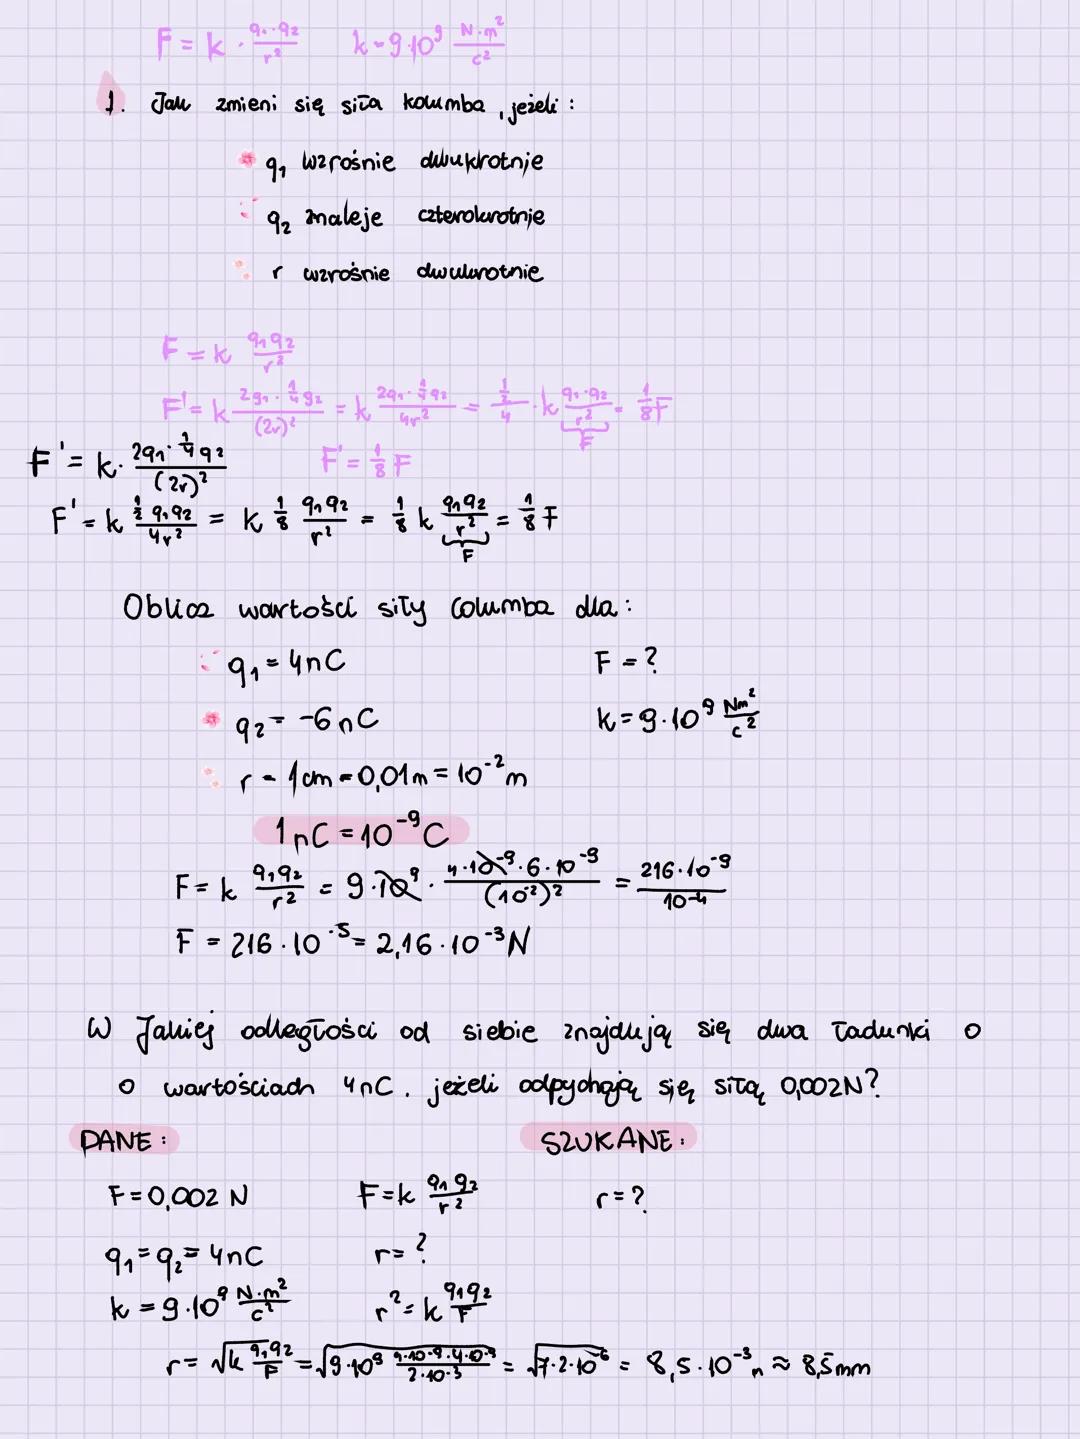 F = k · q₁·q₂/r² k = 9·10⁹ N·m²/c²
1. Jak zmieni się siła kolumba, jeżeli :
q₁ wzrośnie dwukrotnie
q₂ zmaleje czterokrotnie
r wzrośnie dwukrotnie
F = k q₁q₂/r²
F' = k · 2q₁·¼q₂/(2r)² = k 2q₁·¼q₂/4r² = ½/4 · k q₁·q₂/r² = ⅛F
F
F' = k · 2q₁·¼q₂/(2r)² F' = ⅛ F
F' = k ½q₁q₂/4r² = k ⅛ q₁q₂/r² = ⅛ k q₁q₂/r² = ⅛ F
F
Oblicz wartości siły Columba dla :
q₁ = 4nC F = ?
q₂ = -6nC k = 9·10⁹ Nm²/c²
r = 1cm = 0,01m = 10⁻² m
1nC = 10⁻⁹ C
F = k q₁q₂/r² = 9·10⁹ · 4·10⁻⁹·6·10⁻⁹/(10⁻²)² = 216·10⁻⁹/10⁻⁴
F = 216·10⁻⁵ = 2,16·10⁻³ N
W Jakiej odległości od siebie znajdują się dwa ładunki o
o wartościach 4nC. jeżeli odpychają się siłą 0,002N?
DANE : SZUKANE :
F = 0,002 N F = k q₁q₂/r² r = ?
q₁ = q₂ = 4nC r = ?
k = 9·10⁹ N·m²/c² r² = k q₁q₂/F
r = √k q₁q₂/F = √9·10⁹ 4·10⁻⁹·4·10⁻⁹/2·10⁻³ = √7·2·10⁻⁶ = 8,5·10⁻³ m ≈ 8,5mm